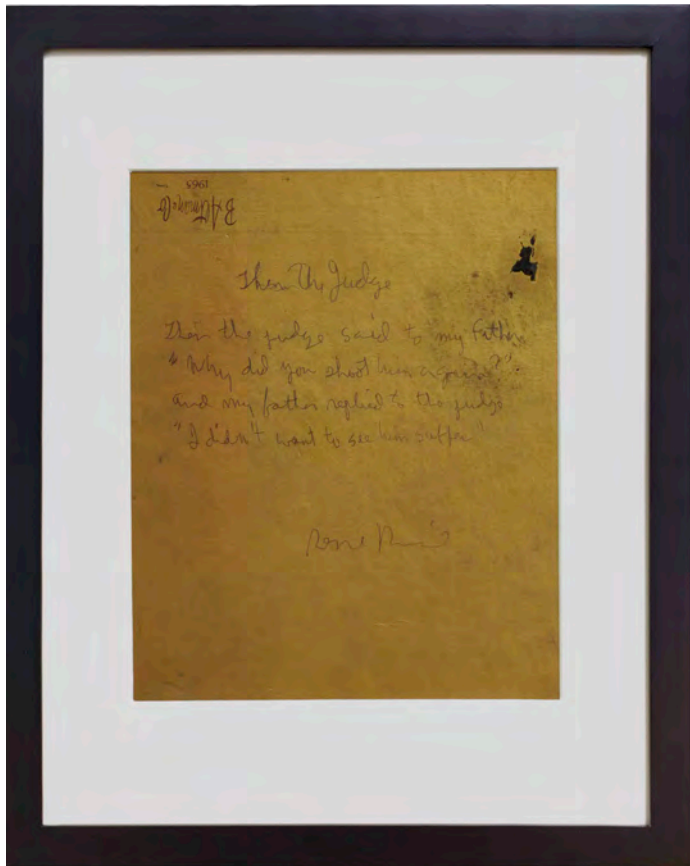 B. Altman & Co
1965
Then The Judge
Then the judge said to my father
"Why did you shoot him again?"
and my father replied to the judge
"I didn't want to see him suffer"